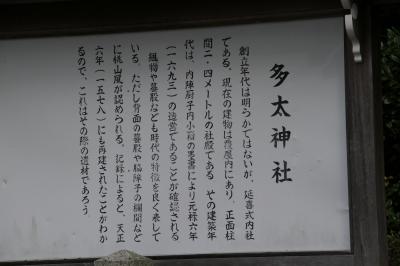 多太神社
創立年代は明らかではないが、延喜式内社
である。現在の建物は覆屋内にあり、正面柱
間二・四メートルの社殿である。その建築年
代は、内陣厨子内小箱の墨書により元禄六年
(一六九三)の造営であることが確認される
組物や蟇股なども時代の特徴を良く表して
いる。ただし背面の蟇股や脇障子の欄間など
に桃山風が認められる。記録によると、天正
六年(一五七八)にも再建されたことがわか
るので、これはその際の遺材であろう